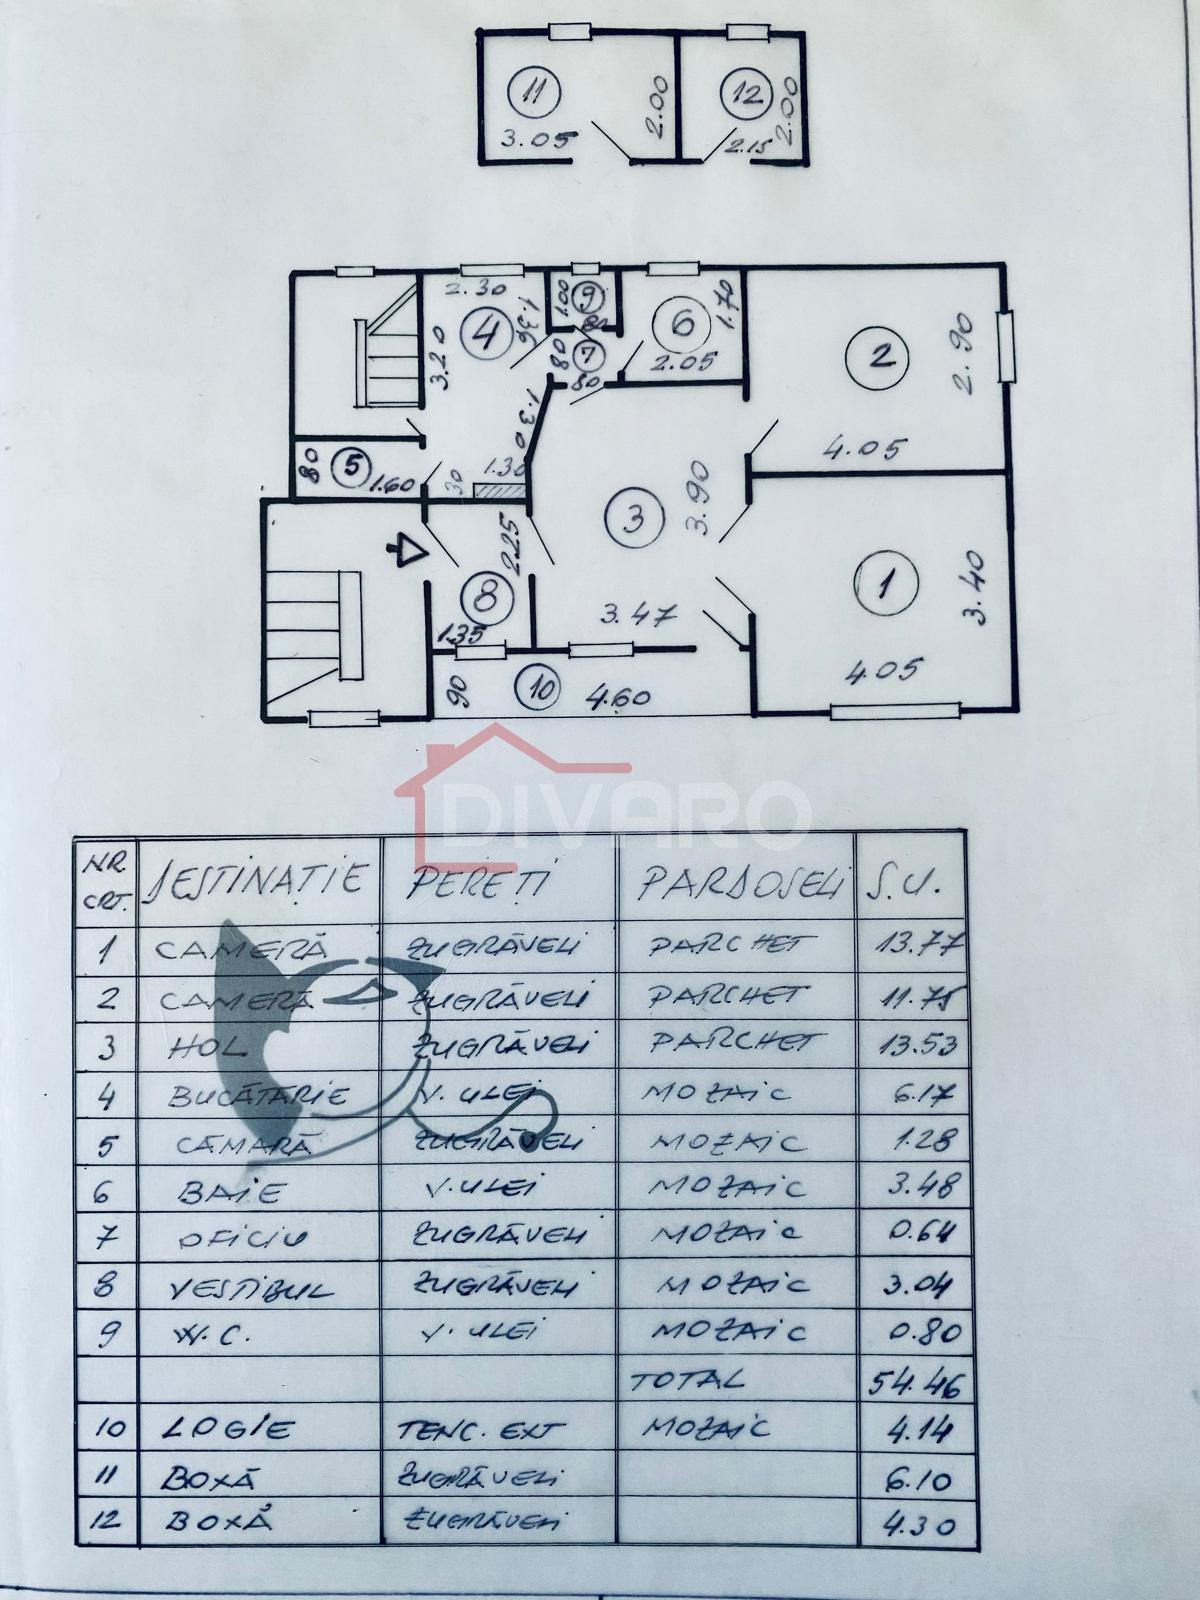 11 12
3.05 2.00 2.15 2.00
2.30 1.00 9 1.70
4 1.36 80 6
3.20 80 7 2.05 2 2.90
80 4.05
1.30
80 5 1.60 30 1.30
3 3.90
2.25
8 1 3.40
1.35 3.47
90 10 4.60 4.05
DIVARO
NR CRT. DESTINAȚIE PEREȚI PARDOSELI S.U.
1 CAMERĂ ZUGRĂVELI PARCHET 13.77
2 CAMERĂ ZUGRĂVELI PARCHET 11.75
3 HOL ZUGRĂVELI PARCHET 13.53
4 BUCĂTARIE V. ULEI MOZAIC 6.17
5 CĂMARĂ ZUGRĂVELI MOZAIC 1.28
6 BAIE V. ULEI MOZAIC 3.48
7 OFICIU ZUGRĂVELI MOZAIC 0.64
8 VESTIBUL ZUGRĂVELI MOZAIC 3.04
9 W.C. V. ULEI MOZAIC 0.80
TOTAL 54.46
10 LOGIE TENC. EXT MOZAIC 4.14
11 BOXĂ ZUGRĂVELI 6.10
12 BOXĂ ZUGRĂVELI 4.30